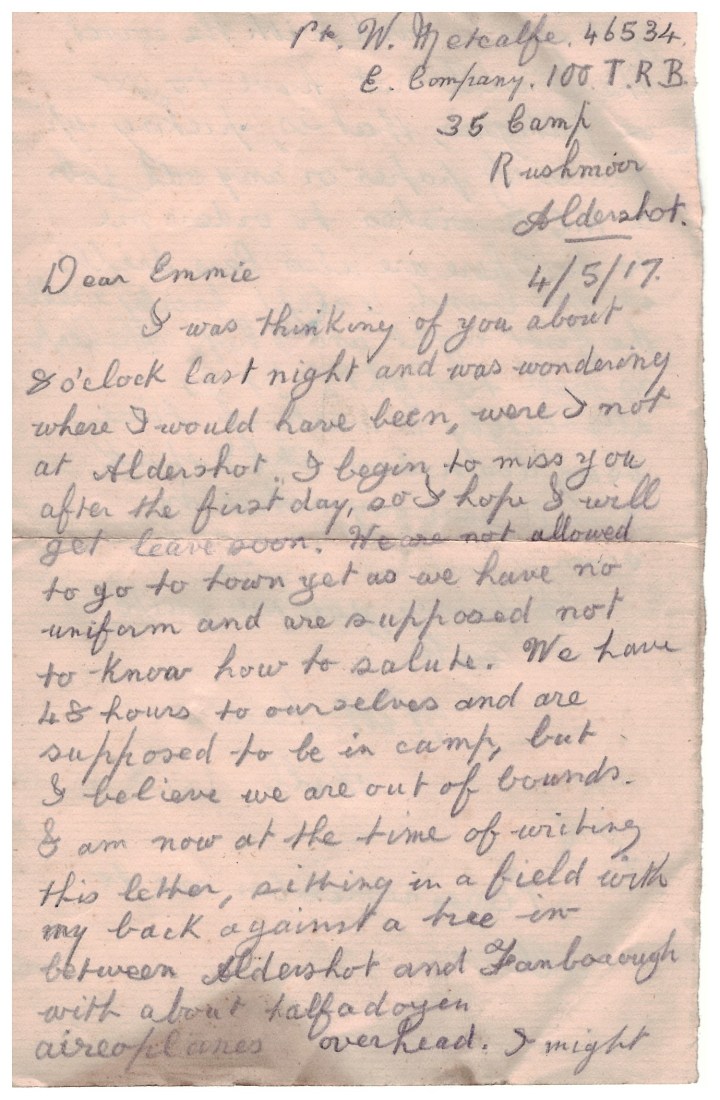 Pte. W. Metcalfe. 46534.
E. Company. 100 T.R.B.
35 Camp
Rushmoor
Aldershot.
4/5/17.
Dear Emmie
I was thinking of you about
8 o'clock last night and was wondering
where I would have been, were I not
at Aldershot. I begin to miss you
after the first day, so I hope I will
get leave soon. We are not allowed
to go to town yet as we have no
uniform and are supposed not
to know how to salute. We have
48 hours to ourselves and are
supposed to be in camp, but
I believe we are out of bounds.
I am now at the time of writing
this letter, sitting in a field with
my back against a tree in
between Aldershot and Fanborough
with about halfadozen
aireoplanes overhead. I might